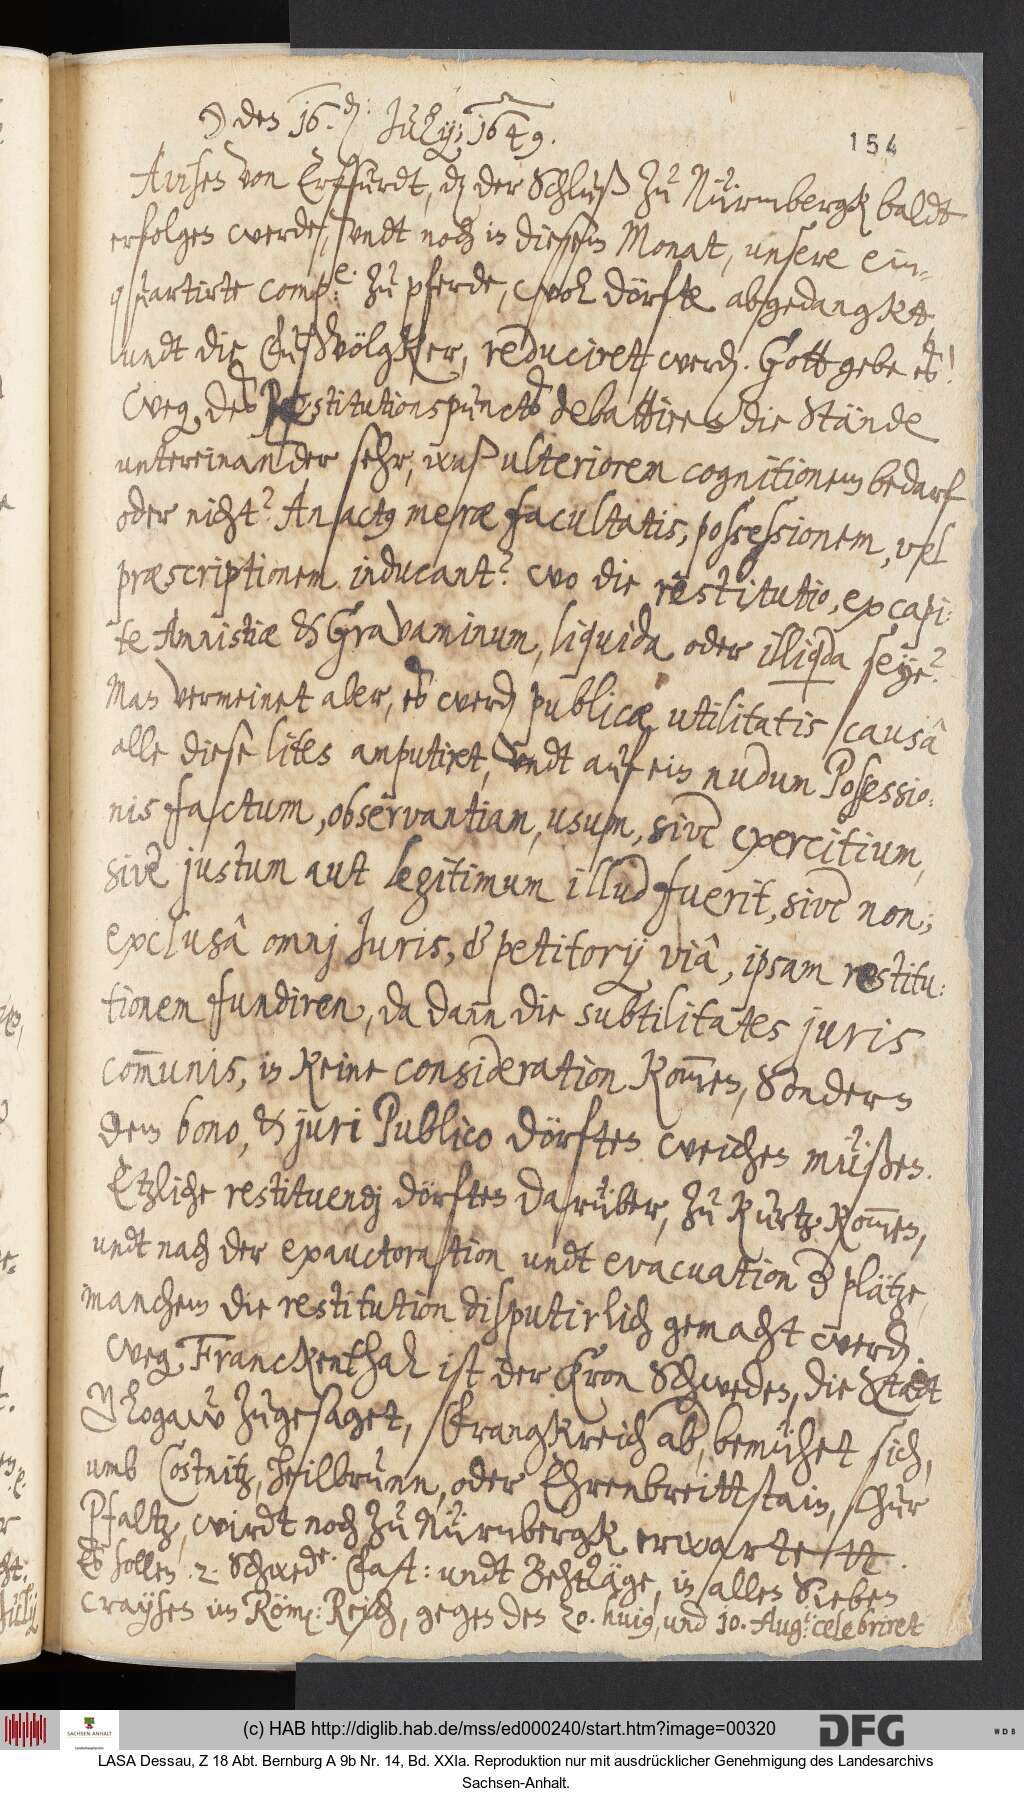 ☽ den 16.den July: 1649.
154
Avisen von Erffurdt, dz der Schluß zu Nürmbergk baldt
erfolgen werde, undt noch in diesem Monat, unsere ein-
quartirte comp:e: zu pferde, wol dörfte abgedangktt,
undt die Fußvölgker, reducirett werden. Gott gebe es!
Weg. des Restitutionspuncts debattiren die Stände
untereinander sehr, waß ulteriorem cognitionem bedarf
oder nicht? An actus meræ facultatis, possessionem, vel
præscriptionem inducant? wo die restitutio, ex capi:
te Amnistiæ & Gravaminum, liquida oder illiquida seye?
Man vermeinet aber, es werde publicæ utilitatis causâ
alle diese lites amputiret, undt auf ein nudum Possessio:
nis factum, observantiam, usum, sive exercitium,
sive justum aut legitimum illud fuerit, sive non,;
exclusâ omnj Juris, & petitorij viâ, ipsam restitu:
tionem fundiren, da dann die subtilitates juris
com̄unis, in keine consideration kom̄en, sondern
dem bono, & juri Publico dörften weichen müßen.
Etzliche restituendj dörften darüber, zu kurtz kom̄en,
undt nach der exauctoration undt evacuation der plätze,
manchem die restitution disputirlich gemacht werden.
Weg. Franckenthal ist der Kron Schweden, die Stadt
Glogaw zugesaget, Frangkreich aber, bemühet sich,
umb Costnitz, Heilbrunn, oder Ehrenbreittstain, Chur
Pfaltz, wirdt noch zu Nürnbergk erwartett.
Es sollen .2. Schwede: Fast: undt Behttäge, in allen Sieben
Craysen im Röm: Reich, gegen den 20. huius, und 10. Aug: celebriret
(c) HAB http://diglib.hab.de/mss/ed000240/start.htm?image=00320
DFG
WDB
SACHSEN-ANHALT
LASA Dessau, Z 18 Abt. Bernburg A 9b Nr. 14, Bd. XXIa. Reproduktion nur mit ausdrücklicher Genehmigung des Landesarchivs
Sachsen-Anhalt.